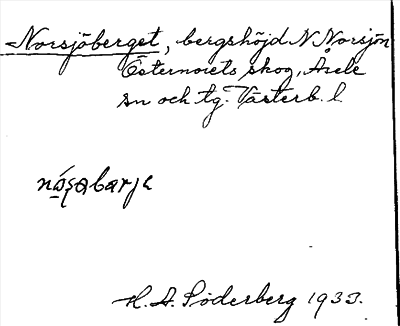 Norsjöberget, bergshöjd N Norsjön
Östernorets skog, Åsele
sn och tg. Västerb. l.
H. A. Söderberg 1933.